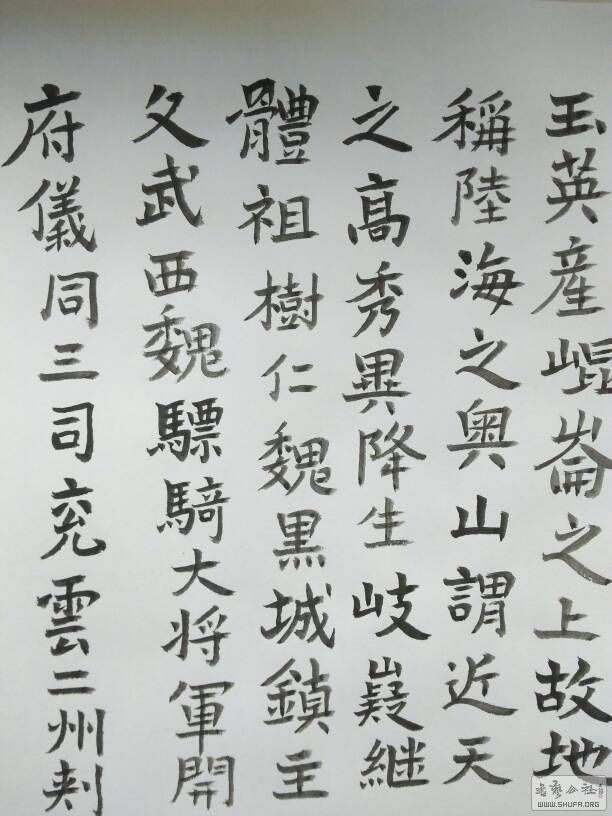 玉英產崐崙之上故地
稱陸海之奧山謂近天
之高秀異降生岐嶷継
體祖樹仁魏黒城鎮主
文武西魏驃騎大将軍開
府儀同三司兖雲二州刾
WWW.SHUFA.ORG